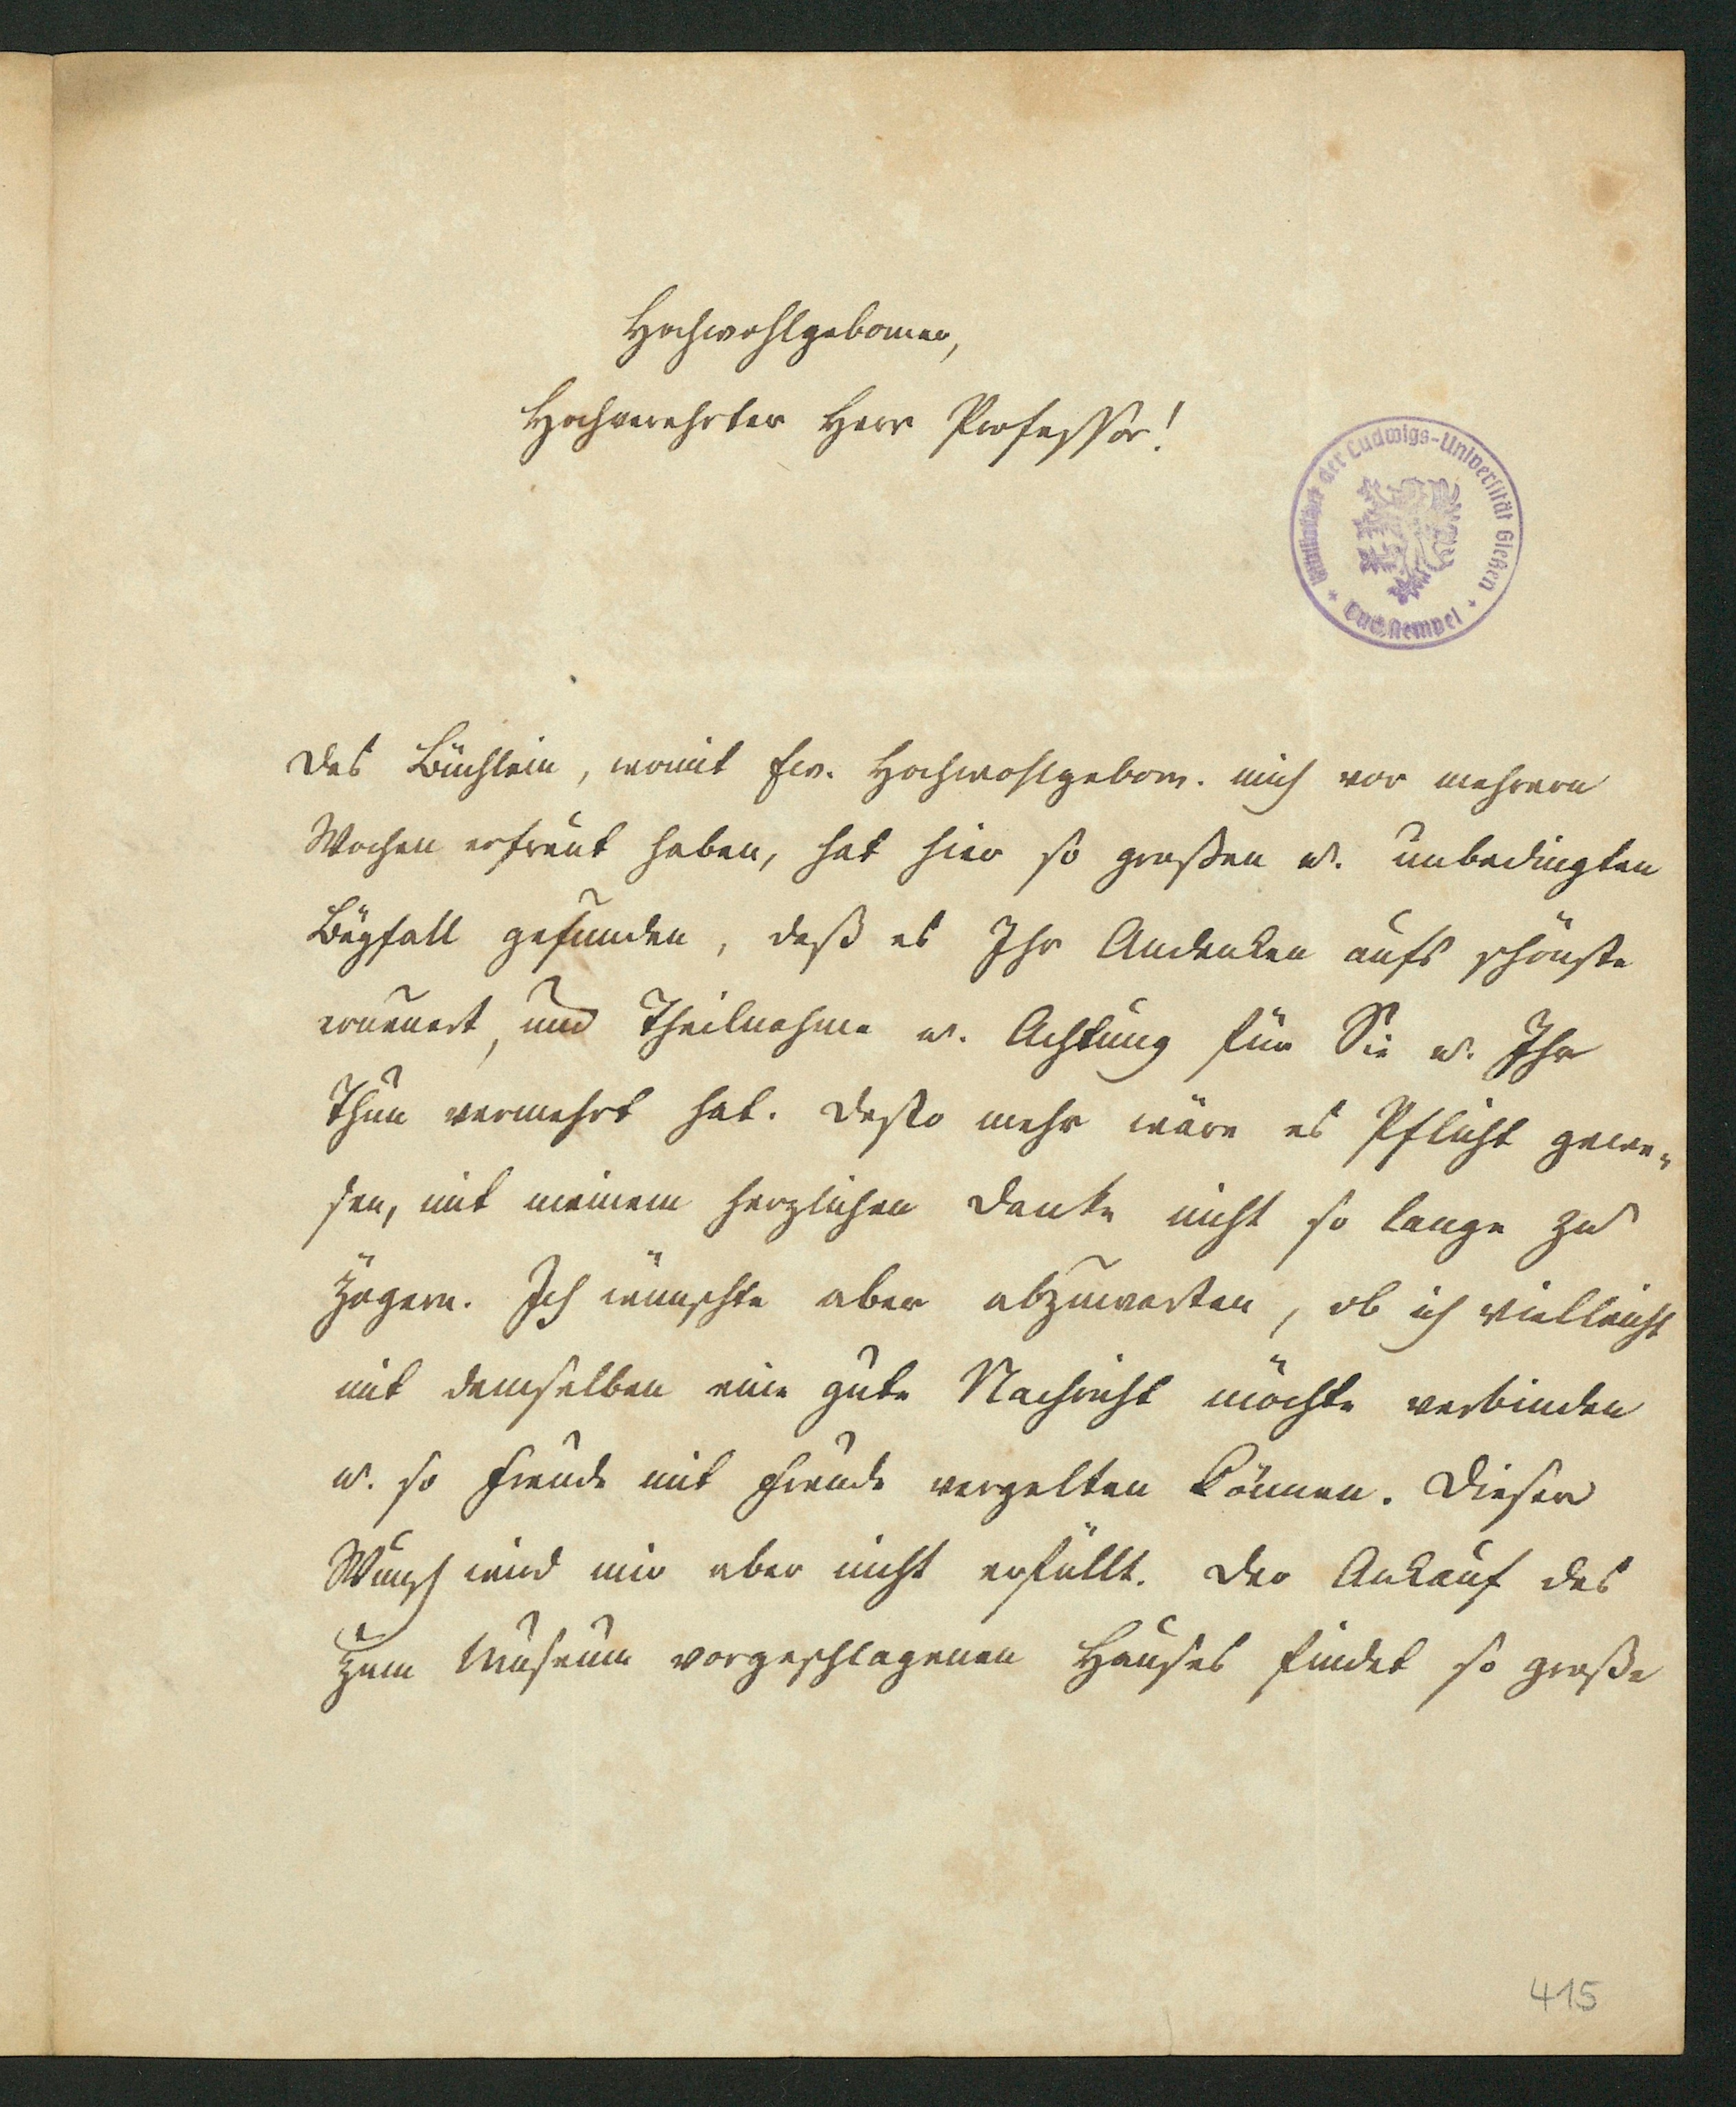 Hochwohlgeborner,
Hochverehrter Herr Professor!
Bibliothek der Ludwigs-Universität Gießen
Das Büchlein, womit Ew. Hochwohlgebor. mich vor mehrern
Wochen erfreut haben, hat hier so großen u. unbedingten
Beyfall gefunden, daß es Ihr Andenken aufs schönste
erneuert, und Theilnahme u. Achtung für Sie u. Ihr
Thun vermehrt hat. Desto mehr wäre es Pflicht gewe-
sen, mit meinem herzlichen Danke nicht so lange zu
zögern. Ich wünschte aber abzuwarten, ob ich vielleicht
mit demselben eine gute Nachricht möchte verbinden
u. so Freude mit Freude vergelten können. Dieser
Wunsch wird mir aber nicht erfüllt. Der Ankauf des
zum Museum vorgeschlagenen Hauses findet so große
415